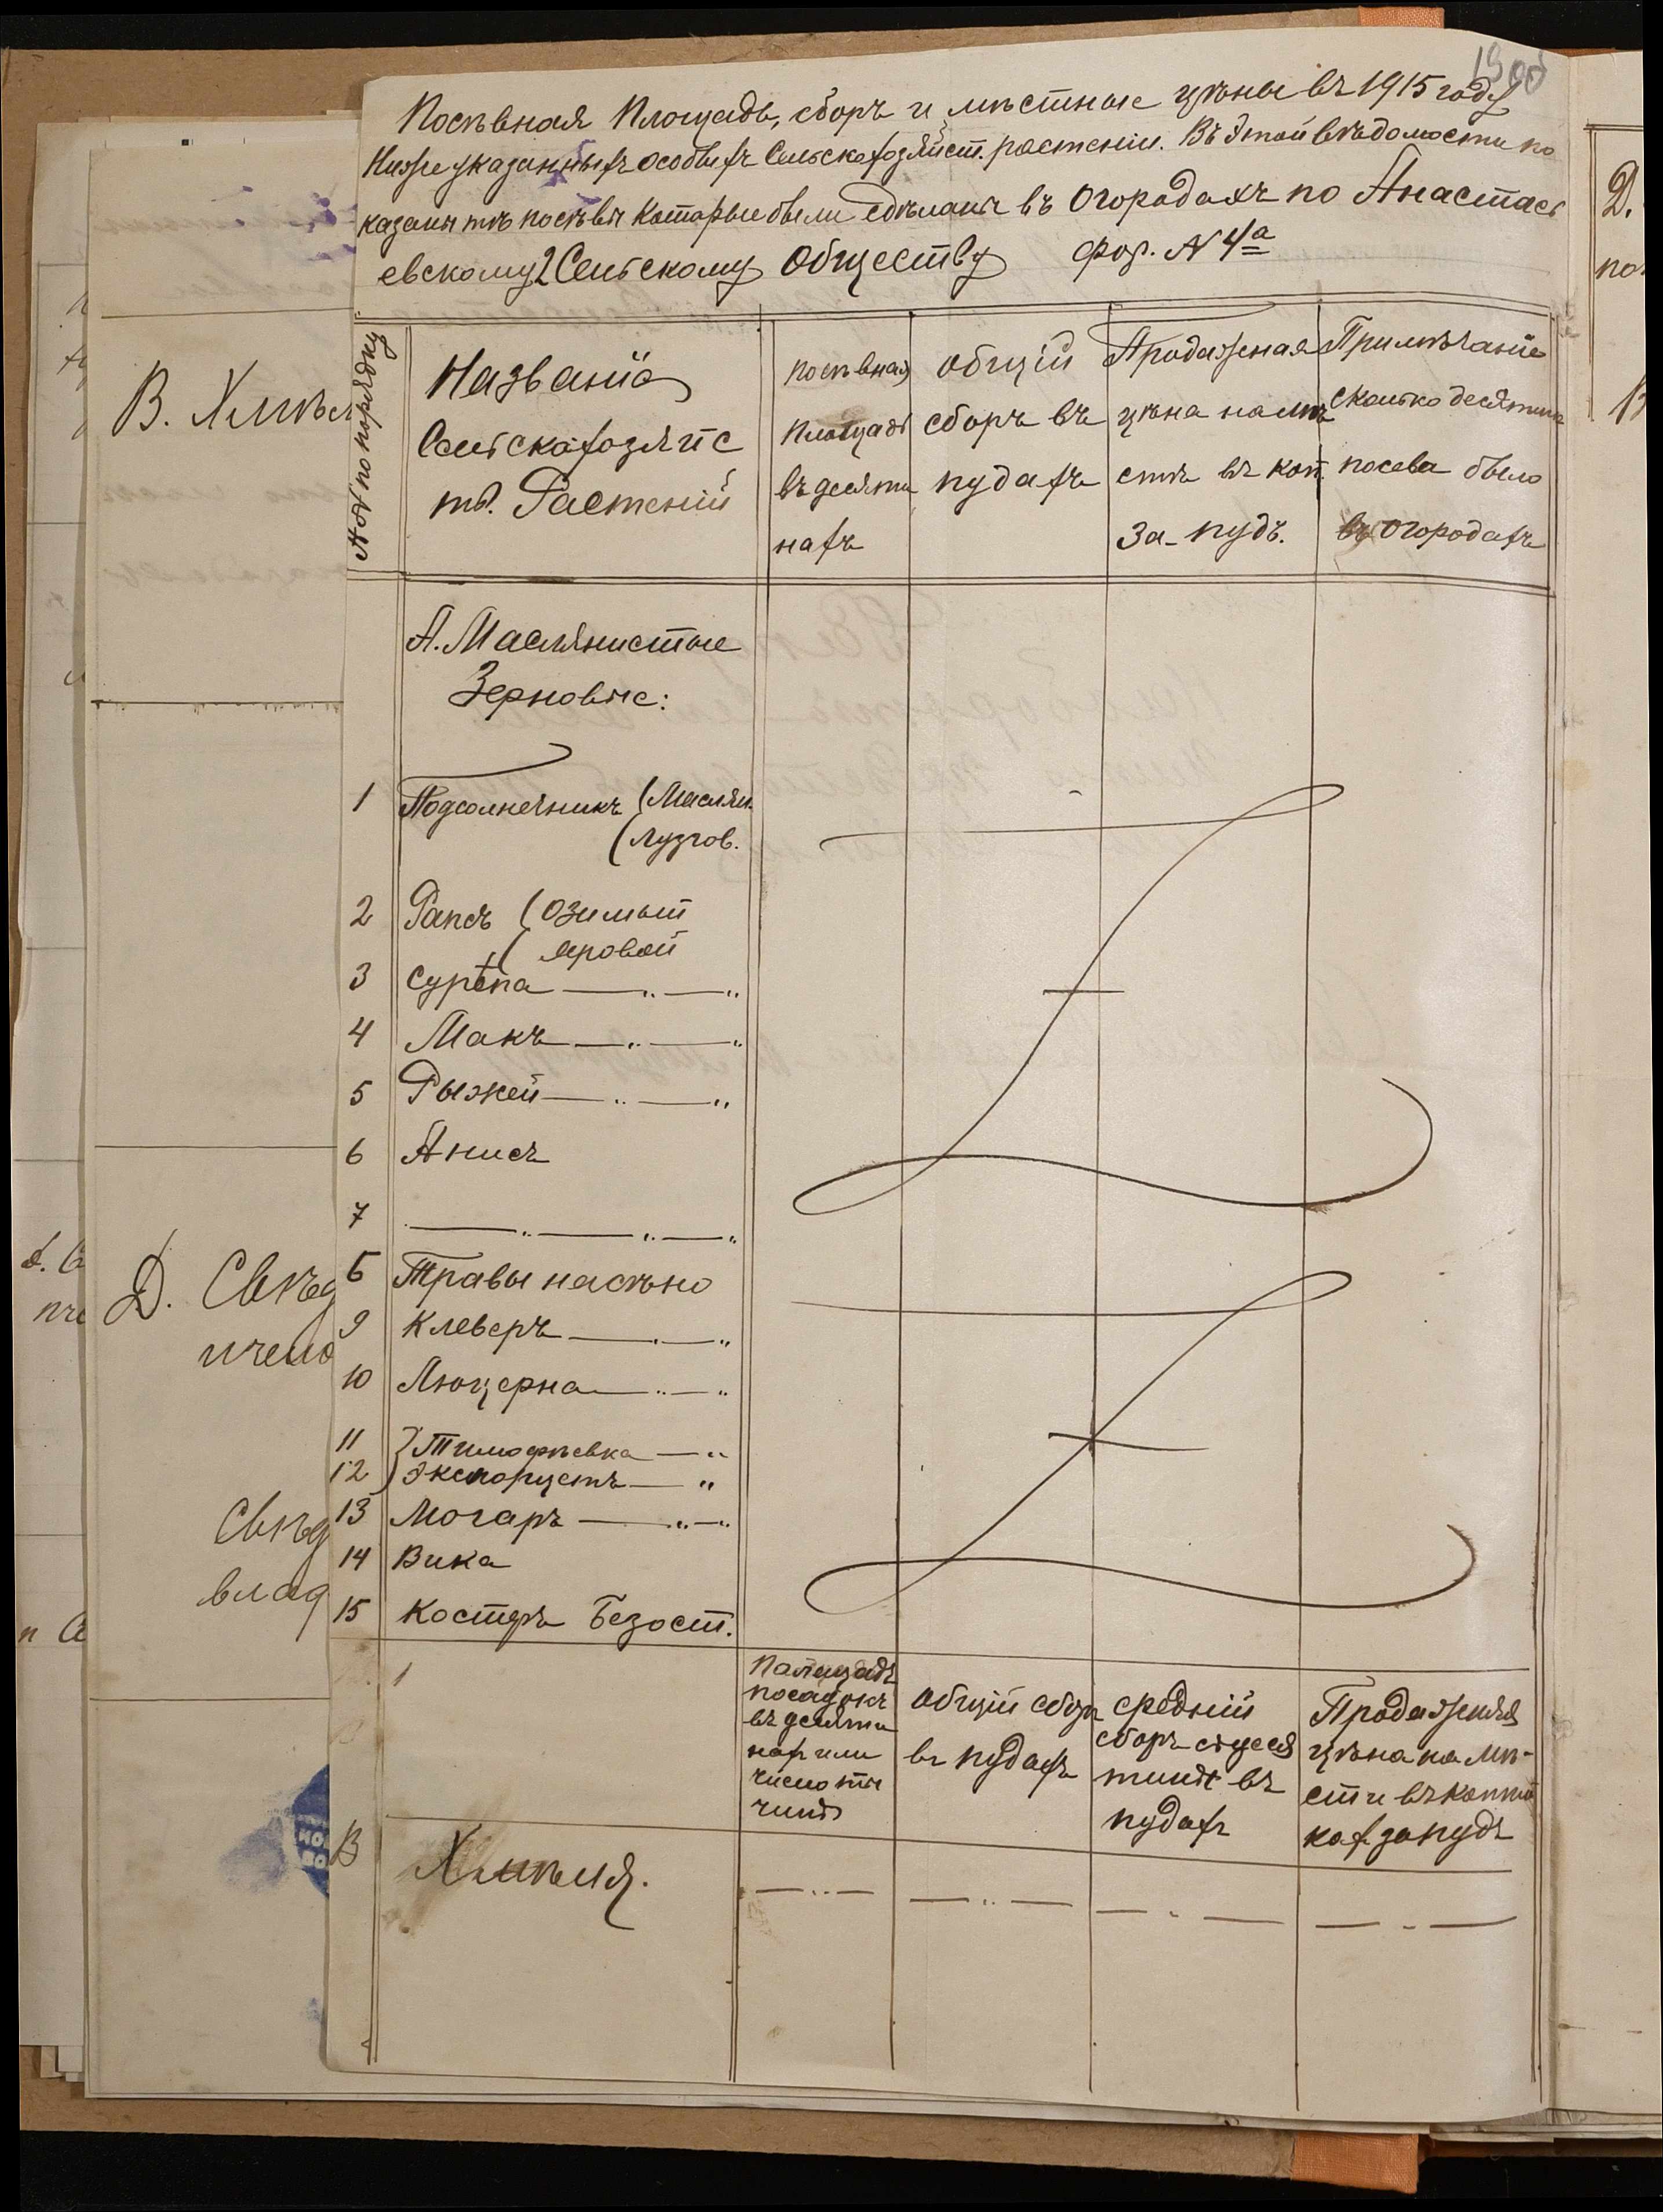 Посѣвная Площадь, сборъ и мѣстные цѣны въ 1915 году
Ниже указанныхъ особыхъ Сельскохозяйст. растеніи. Въ Этой вѣдомости по
казаны тѣ посѣвы Которые были сдѣланы въ Огородахъ по Анастасі
евскому 2 Сельскому Обществу фор. N 4а
№№ по порядку
Названіе
Сельскохозяйс
тв. Растеній
посѣвная
площадь
въ десяти
нахъ
общій
сборъ въ
пудахъ
Продажная
цѣна на мѣ
стѣ въ коп.
за пудъ.
Примѣчаніе
сколько десятинъ
посева было
въ огородахъ
А. Маслянистые
Зерновые:
1 Подсолнечникъ (Маслян.
(лузгов.
2 Рапсъ (Озимый
( яровой
3 Сурѣпа — „ — „
4 Макъ — „ — „
5 Рыжей — „ — „
6 Анисъ
7 — „ — „ — „
Б Травы на сѣно
9 Клеверъ — „ — „
10 Люцерна — „ — „
11 Тимофѣевка — „
12 Экспорцетъ — „
13 Могаръ — „ — „
14 Вика
15 Костеръ Безост.
1
Площадь
посадокъ
въ десяти
нахъ или
число ты
чинъ
общій сборъ
въ пудахъ
средній
сборъ съ деся
тины въ
пудахъ
Продажная
цѣна на мѣ-
сти въ копѣй
ках за пудъ
В Хмѣля.
— „ — — „ — — „ — — „ —
В. Хмѣл
Д. Свѣд
пчело
Свѣд
влад
Д.